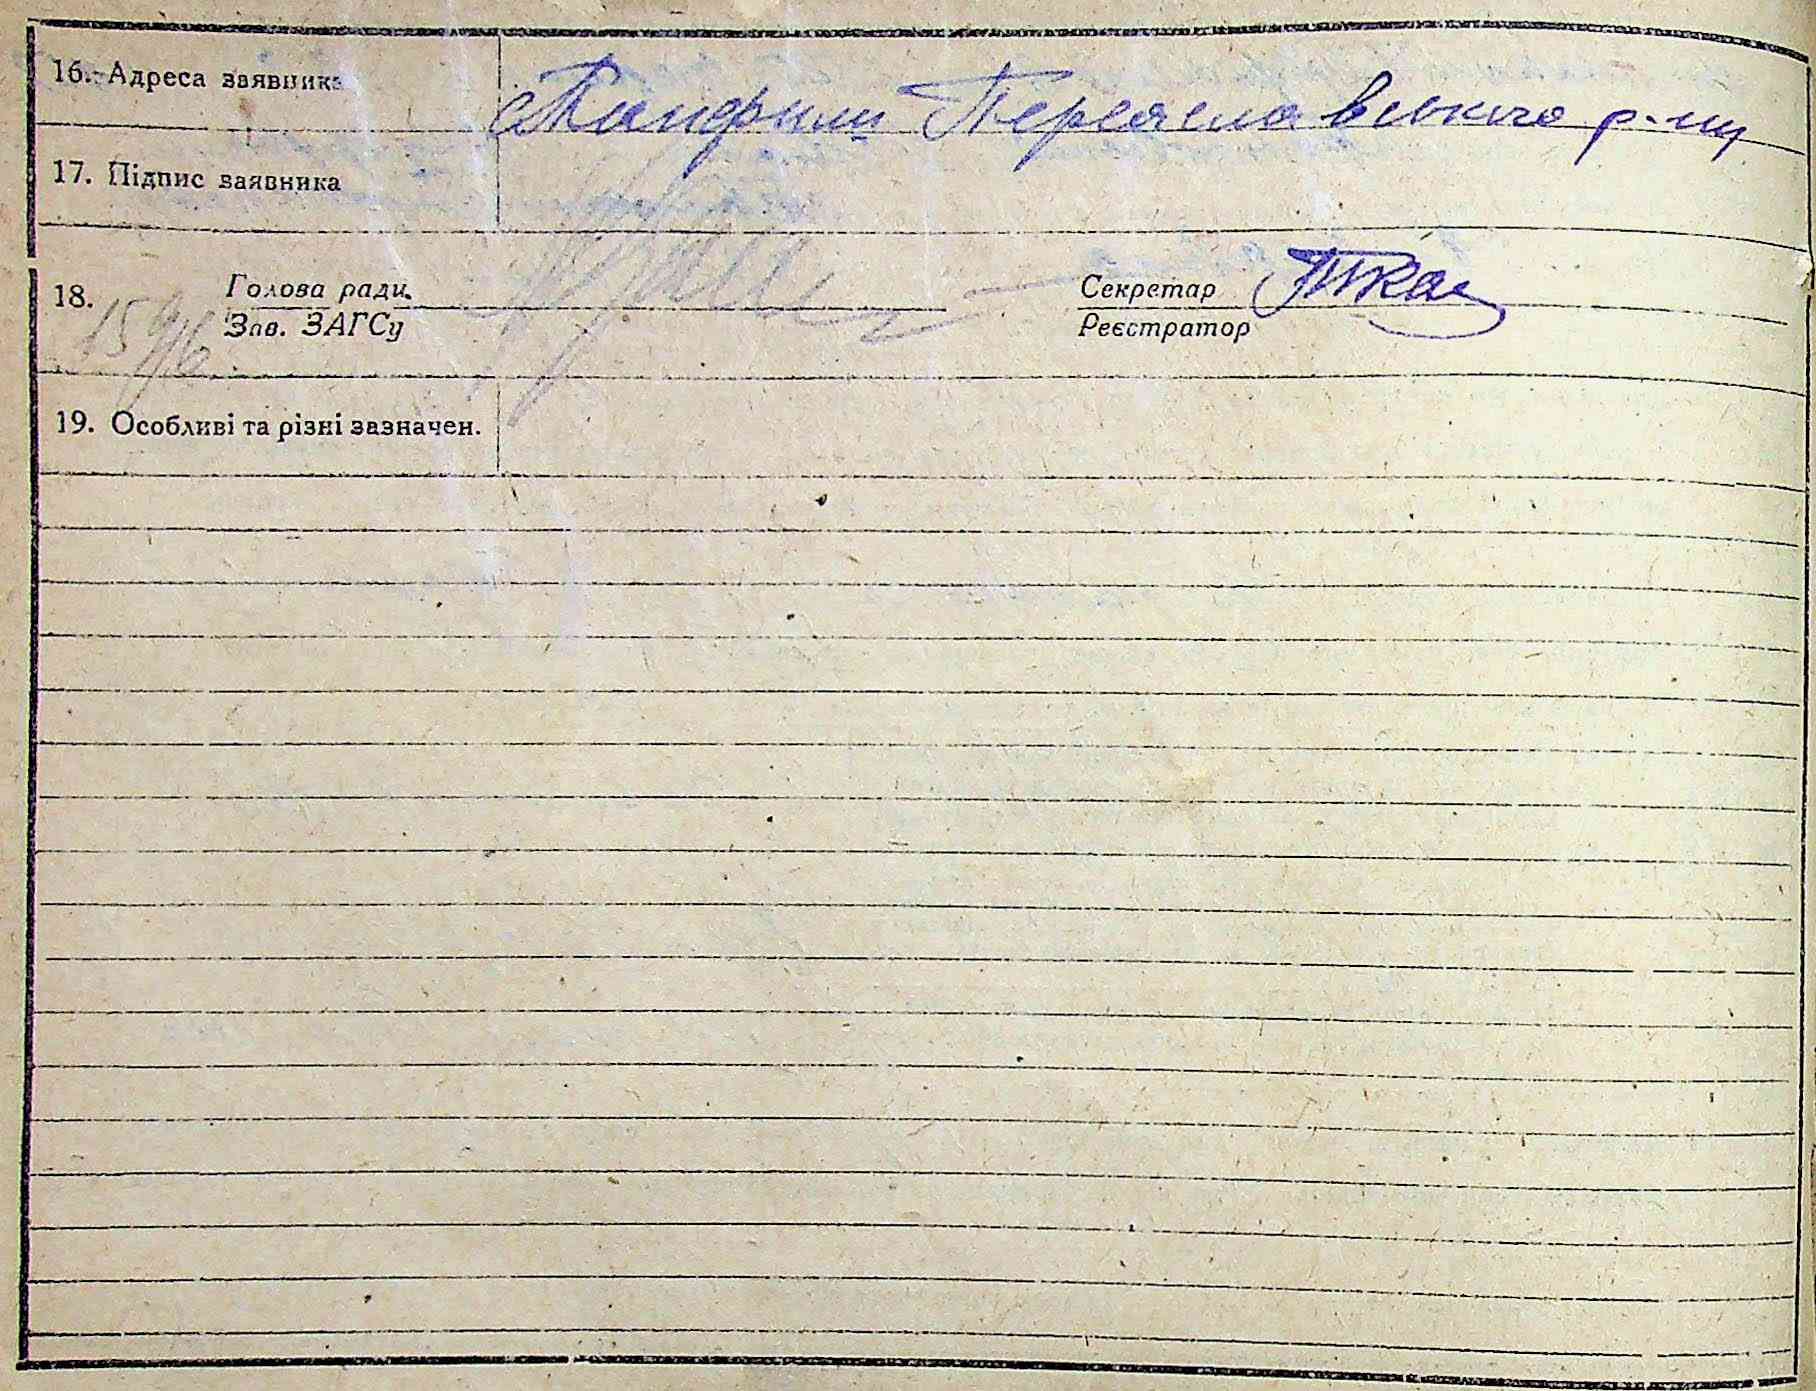 16. Адреса заявника с Панфили Переяславського р-ну
17. Підпис заявника
18. Голова ради. Секретар Тка
Зав. ЗАГСу Реєстратор
19. Особливі та різні зазначен.